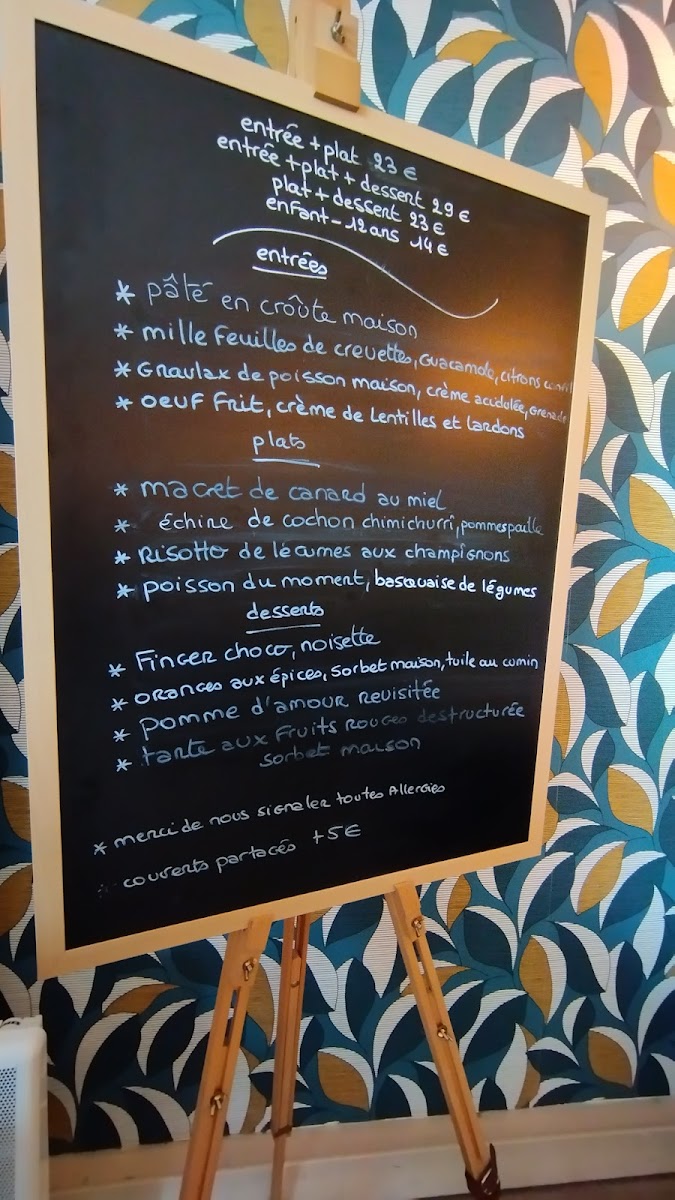 entrée + plat 23 €
entrée + plat + dessert 29 €
plat + dessert 23 €
enfant - 12 ans 14 €
entrées
* pâté en croûte maison
* mille feuilles de crevettes, guacamole, citrons
* Gravlax de poisson maison, crème acidulée, Grenade
* oeuf frit, crème de lentilles et lardons
plats
* magret de canard au miel
* échine de cochon chimichurri, pommes paille
* Risotto de légumes aux champignons
* poisson du moment, basquaise de légumes
desserts
* Finger choco, noisette
* oranges aux épices, sorbet maison, tuile au cumin
* pomme d'amour revisitée
* tarte aux fruits rouges destructurée
sorbet maison
* merci de nous signaler toutes Allergies
couverts partagés +5€